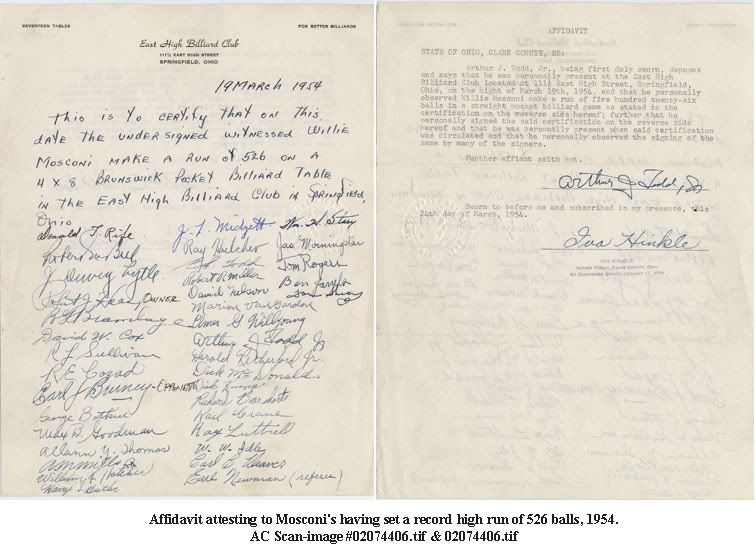 SEVENTEEN TABLES
FOR BETTER BILLIARDS
East High Billiard Club
111½ EAST HIGH STREET
SPRINGFIELD, OHIO
19 MARCH 1954
This is to certify that on this
date the undersigned witnessed Willie
Mosconi make a run of 526 on a
4 x 8 Brunswick Pocket Billiard Table
in the East High Billiard Club in Springfield,
Ohio
Donald T. Rife
J. Dewey Lytle
OWNER
David W. Cox
R F Sullivan
R. E. Cozad
Earl J Bruney
George Bothein
Max B. Goodman
Allann Y. Thomas
William
Harry S. Butler
J. F. Midgett
Ray Hatcher
Todd
Robert R. Miller
David Nelson
Marion Van Gordon
Elmer G Willyoung
Arthur J Todd Jr
Harold Jr.
Dick McDonald
Dick
Richard
Karl Crane
Ray Luttrell
W. W. Idle
Earl C Weaver
Earl Newman (referee)
Wm. H.
Jas. Morningstar
Tom Rogers
Ben
AFFIDAVIT
STATE OF OHIO, CLARK COUNTY, SS:
Arthur J. Todd, Jr., being first duly sworn, deposes
and says that he was personally present at the East High
Billiard Club located at 111½ East High Street, Springfield,
Ohio, on the night of March 19th, 1954, and that he personally
observed Willie Mosconi make a run of five hundred twenty-six
balls in a straight pocket billiard game as stated in the
certification on the reverse side hereof; further that he
personally signed the said certification on the reverse side
hereof and that he was personally present when said certification
was circulated and that he personally observed the signing of the
same by many of the signers.
Further affiant saith not.
Arthur J Todd, Jr
Sworn to before me and subscribed in my presence, this
24th day of March, 1954.
Iva Hinkle
IVA HINKLE
NOTARY PUBLIC, CLARK COUNTY, OHIO
MY COMMISSION EXPIRES OCTOBER
Affidavit attesting to Mosconi's having set a record high run of 526 balls, 1954.
AC Scan-image #02074406.tif & 02074406.tif